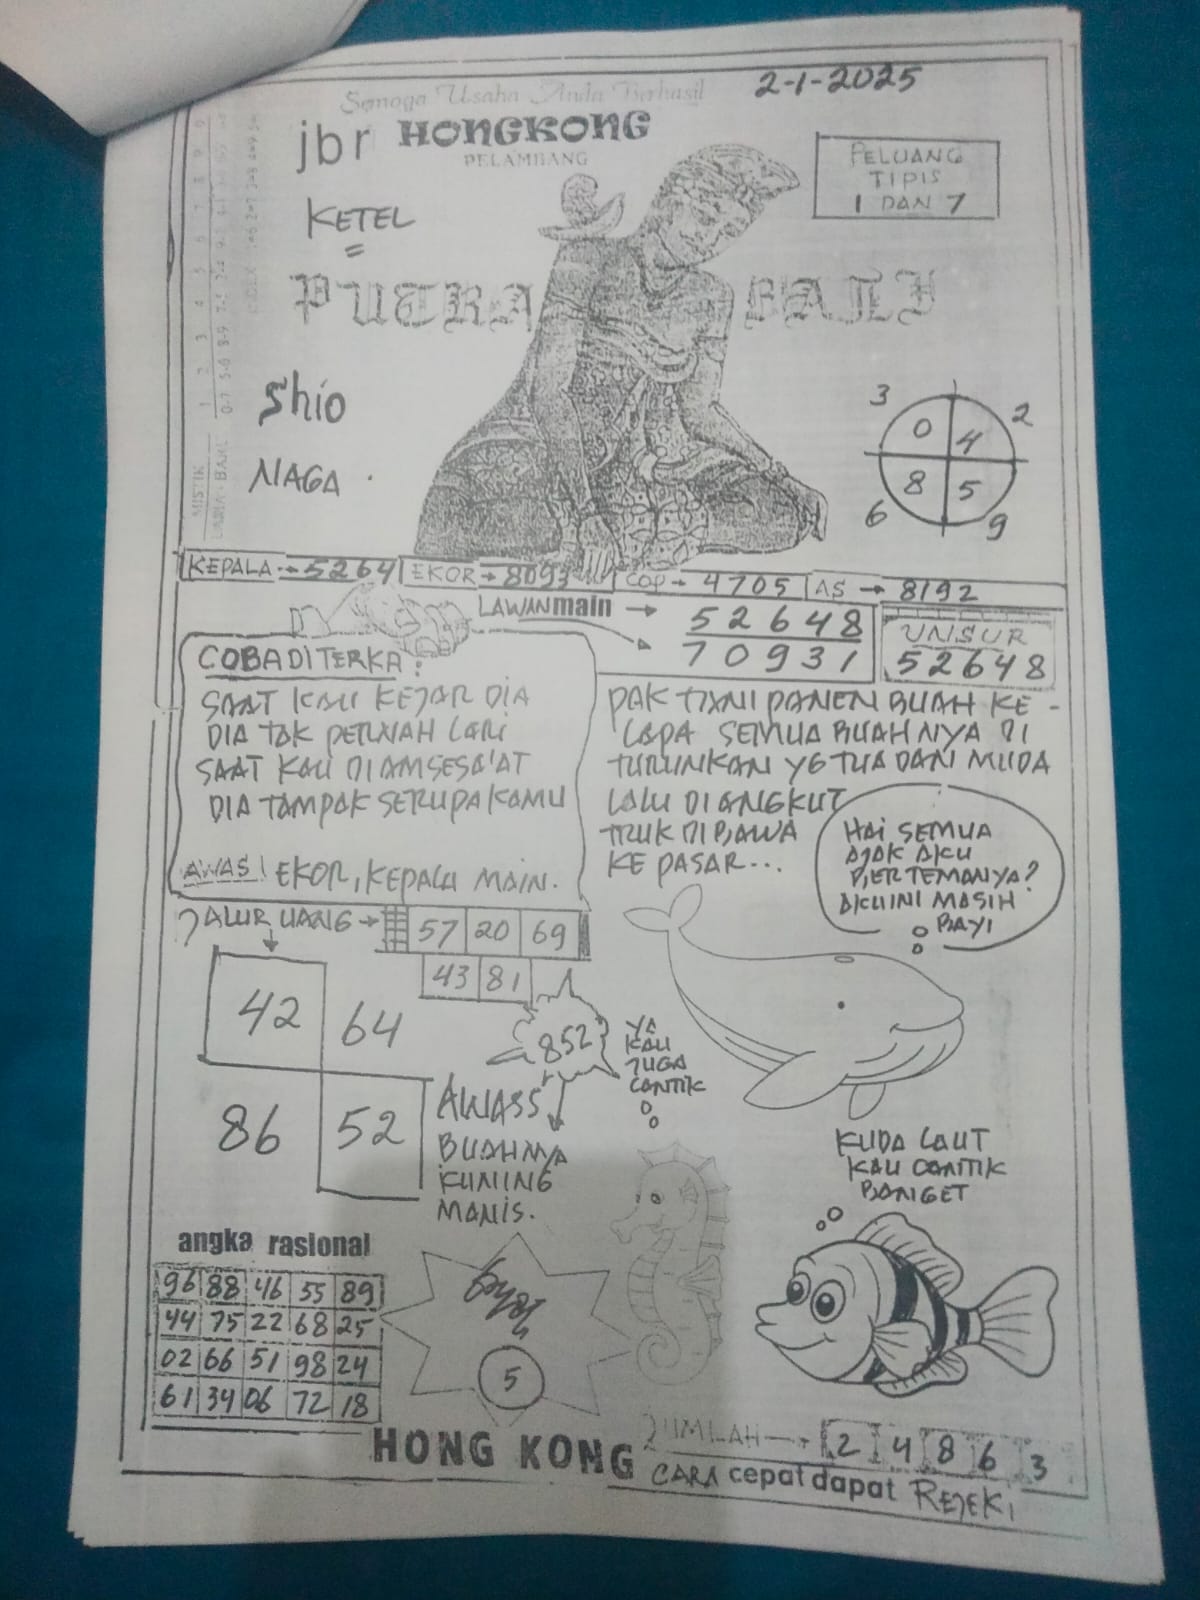 2-1-2025
Semoga Usaha Anda Berhasil
jbr HONGKONG
PELAMBANG
PELUANG
TIPIS
1 DAN 7
KETEL
PUTRA BALI
Shio
NAGA
MISTIK
3 2
0 4
8 5
6 9
KEPALA → 5264 EKOR → 8093 COP → 4705 AS → 8192
LAWAN main → 52648
70931
UNSUR
52648
COBA DITERKA:
SAAT KAU KEJAR DIA
DIA TAK PERNAH LARI
SAAT KAU DIAM SESA'AT
DIA TAMPAK SERUPA KAMU
AWAS! EKOR, KEPALA MAIN.
PAK TANI PANEN BUAH KE-
LAPA SEMUA BUAHNYA DI
TURUNKAN YG TUA DAN MUDA
LALU DI ANGKUT
TRUK DI BAWA
KE PASAR...
HAI SEMUA
AJAK AKU
BERTEMANYA?
AKU INI MASIH
BAYI
JALUR UANG → 57 20 69
43 81
42 64
86 52
852
AWASS
BUAHNYA
KUNING
MANIS.
YA
KAU
JUGA
CANTIK
KUDA LAUT
KAU CANTIK
BANGET
angka rasional
96 88 46 55 89
44 75 22 68 25
02 66 51 98 24
61 34 06 72 18
5
HONG KONG
JUMLAH → 2 4 8 6 3
CARA cepat dapat REJEKI